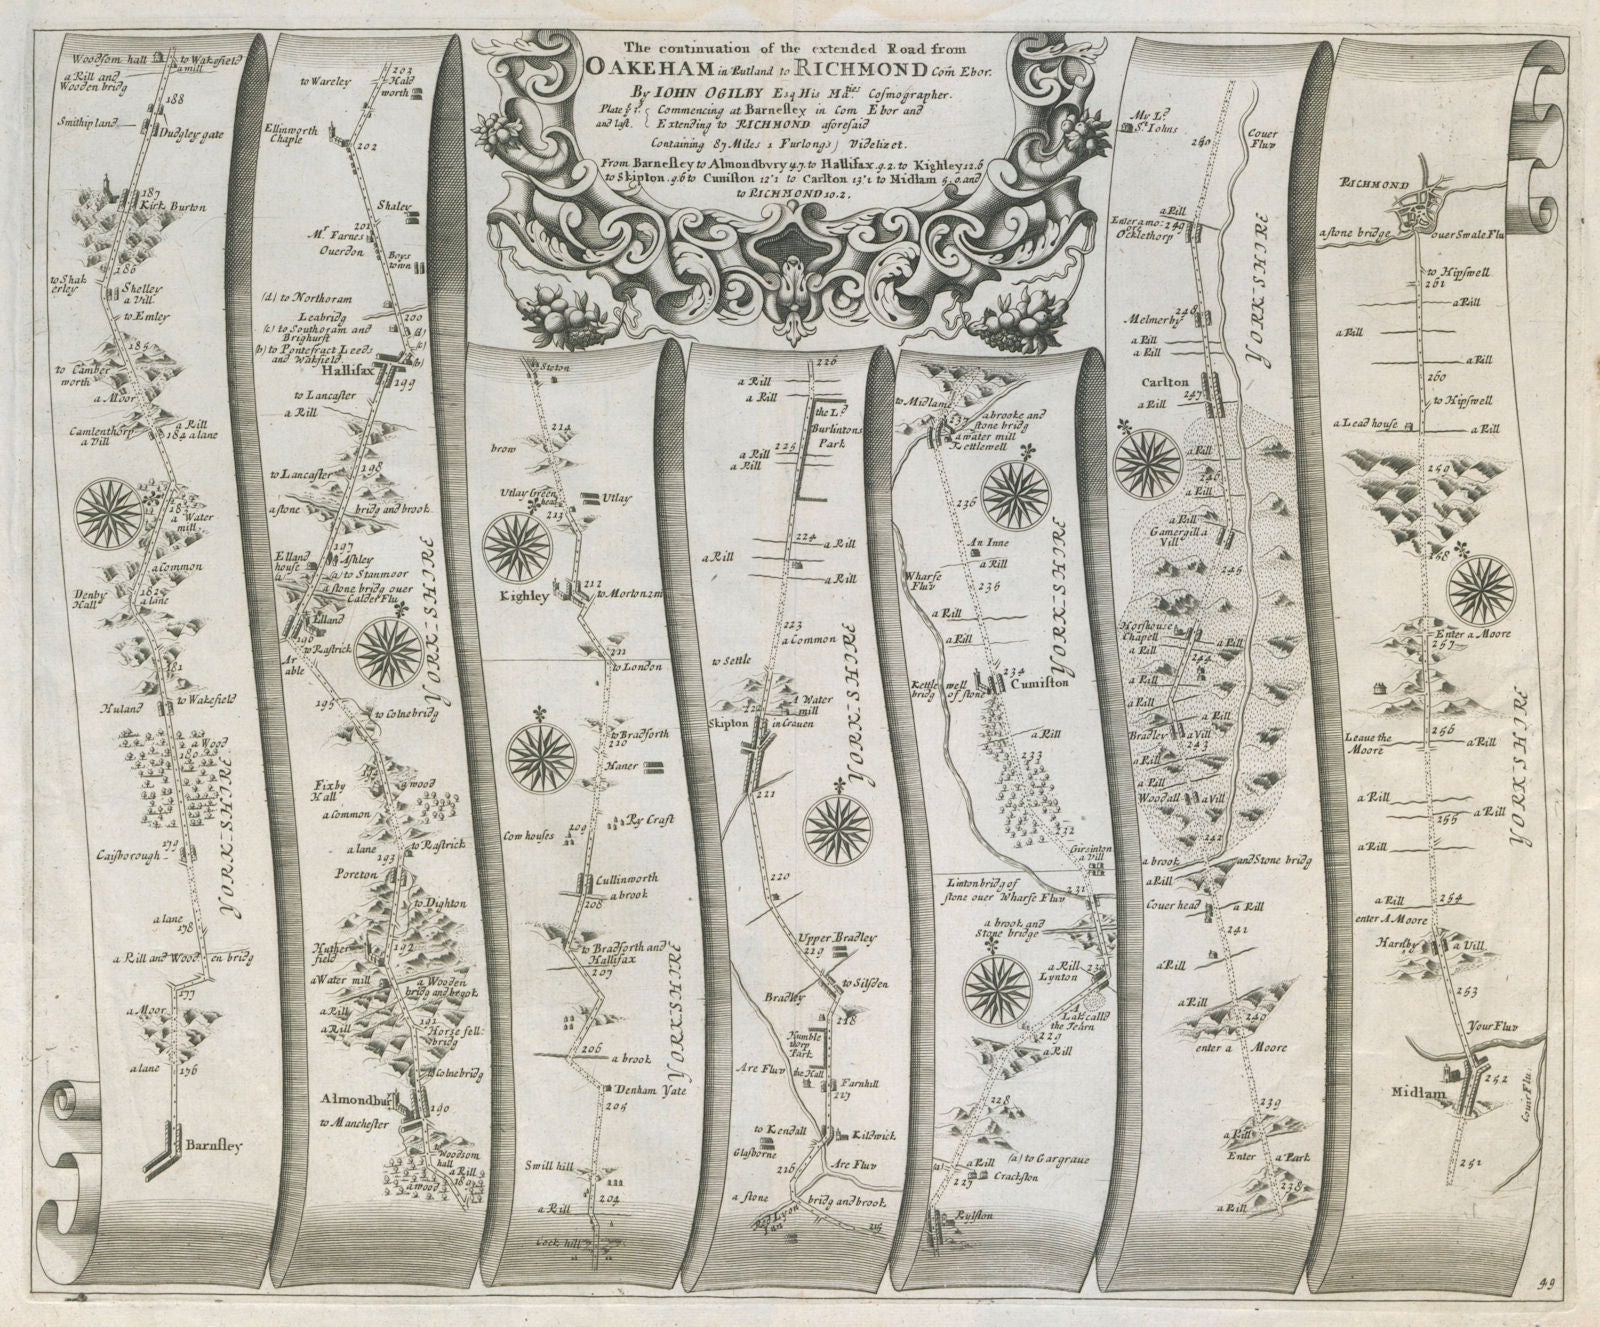 The continuation of the extended Road from
OAKEHAM in Rutland to RICHMOND Com Ebor.
By IOHN OGILBY Esq His Ma.ties Cosmographer.
Commencing at Barnesley in Com Ebor and
and last. Extending to RICHMOND aforesaid
Containing 87 Miles 1 Furlong; Videlizet.
From Barnesley to Almondbury 14.7. to Hallifax .9.2. to Kighley 12.6
to Skipton .9.6 to Cuniston 12'1 to Carlton 13'1 to Midlam 5.0. and
to RICHMOND 10.2.
Woodsom hall
to Wakefield
a mill
a Rill and
Wooden bridg
188
Smithipland
Dudgley gate
187
Kirk Burton
186
to Shak
erley
Shelley
a Vill.
to Emley
185
to Camber
worth
a Moor
Camlenthorp
a Vill
a Rill
184 a lane
183
a Water
mill.
a Common
Denby
Hall
182
a lane
181
Huland
to Wakefield
a Wood
180
YORK-SHIRE
179
Caisborough
a lane
178
a Rill and Wood en bridg
177
a Moor
a lane
176
Barnsley
to Wareley
203
Hald
worth
Ellinworth
Chaple
202
Shaley
201
Mr Farnes
Overdon
Boys
town
(d) to Northoram
Leabridg
200
(c) to Southoram and
Brighurst
(d)
(c)
(b) to Pontefract Leeds
and Wakfield
(b)
Hallifax
199
to Lancaster
a Rill
198
to Lancaster
a stone bridg and brook
197
Elland
house
(a)
Ashley
(a) to Stanmoor
a stone bridg over
Calder Flu
Elland
196
to Rastrick
Ar
able
195
to Colnebridg
YORK-SHIRE
194
Fixby
Hall
a wood
a Common
a lane
193
to Rastrick
Poreton
to Dighton
Huther
field
192
a Water mill
a Wooden
bridg and brook
a Rill
a Rill
191
Horse fell
bridg
to Colnebridg
Almondbury
190
to Manchester
to Woodsom
hall
a Rill
189
a wood
Stoton
214
brow
Utlay Green
head
Utlay
213
212
Kighley
to Morton 2 m
211
to London
to Bradforth
210
Haner
209
Cow houses
Ry Craft
Cullinworth
a brook
208
to Bradforth and
Hallifax
207
206
a brook
Denham Yate
205
YORKSHIRE
Swill hill
204
a Rill
Cock hill
226
a Rill
a Rill
the Ld
Burlintons
Park
225
a Rill
a Rill
224
a Rill
a Rill
a Rill
223
a Common
to Settle
222
a Water
mill
Skipton
in Craven
221
YORK-SHIRE
220
Upper Bradley
219
to Silsden
Bradley
218
Humble
thorp
Park
Are Fluv
the Hall
Farnhill
217
to Kendall
Kildwick
Glasborne
216
Are Fluv
a stone bridg and brook
Red Lyon
Inn
215
to Midlam
237
a brooke and
stone bridg
a water mill
Kettlewell
236
An Inne
a Rill
Wharfe
Fluv
235
a Rill
a Rill
YORK-SHIRE
234
Kettle well
bridg of stone
Cuniston
a Rill
233
232
Girsinton
a Vill
Linton bridg of
stone over Wharfe Fluv
231
a brook and
Stone bridge
a Rill
230
Lynton
A
Lak calld
the Tearn
229
a Rill
228
(a) to Gargrave
(a)
a Rill
227
Crackston
Rylston
My Ld
St Iohns
Couer
Fluv
250
a Rill
Enter a mo
ore
249
Ocklethorp
248
Melmerby
a Rill
a Rill
Carlton
247
a Rill
YORK-SHIRE
a Rill
246
a Rill
a Rill
Gamersgill a
Vill
245
Horshouse
Chapell
a Rill
a Rill
244
a Rill
a Rill
a Rill
Bradley
a Vill
243
a Rill
a Rill
Woodall
a Vill
242
a brook and Stone bridg
a Rill
Couer head
a Rill
241
a Rill
a Rill
240
enter a Moore
239
a Rill
Enter a Park
238
a Rill
RICHMOND
a stone bridge over Swale Flu
to Hipswell
261
a Rill
a Rill
a Rill
260
to Hipswell
a Lead house
a Rill
259
258
Enter a Moore
257
256
Leave the
Moore
a Rill
YORKSHIRE
a Rill
a Rill
255
a Rill
254
a Rill
enter A Moore
Harnby
a Vill
253
Your Fluv
252
Midlam
Couer Flu.
251
49